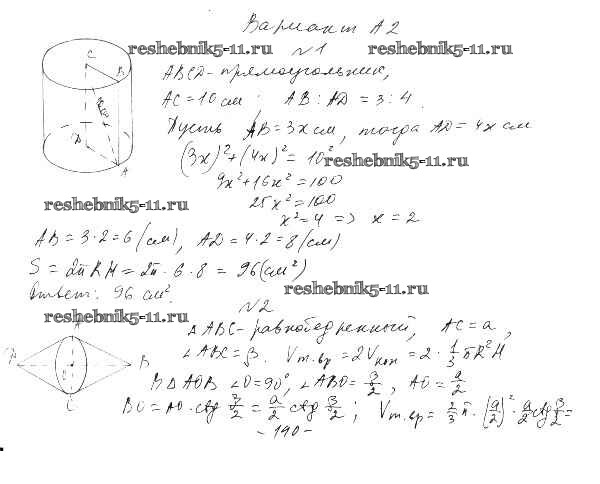 Вариант А2
reshebnik5-11.ru №1 reshebnik5-11.ru
ABCD - прямоугольник,
AC = 10 см ; AB : AD = 3 : 4.
Пусть AB = 3x см, тогда AD = 4x см
(3x)² + (4x)² = 10² reshebnik5-11.ru
9x² + 16x² = 100
25x² = 100
reshebnik5-11.ru
x² = 4 => x = 2
AB = 3·2 = 6 (см), AD = 4·2 = 8 (см)
S = 2πRH = 2π · 6 · 8 = 96 (см²)
reshebnik5-11.ru
Ответ: 96 см².
№2
reshebnik5-11.ru
△ABC - равнобедренный, AC = a,
∠ABC = β. Vт.вр = 2Vкон = 2 · 1/3 πR²H
В △AOB ∠O = 90°, ∠ABO = β/2, AO = a/2
BO = AO · ctg β/2 = a/2 ctg β/2 ; Vт.вр = 2/3 π · (a/2)² · a/2 ctg β/2 =
- 190 -
C
B
D
A
A
D
B
O
C